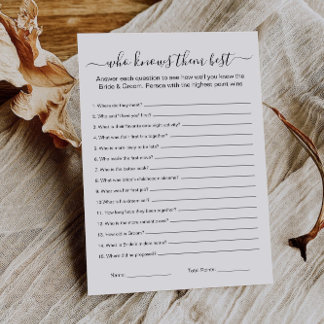 who knows them best
Answer each question to see how well you know the
Bride & Groom. Person with the highest point wins
1. Where did they meet?
2. Who said "I love you" first?
3. What is their favorite date night activity?
4. What was their first trip together?
5. Who is more likely to be late?
6. Who made the first move?
7. Who is the better cook?
8. What was bride's childhood nickname?
9. What was their first job?
10. What
11. How long have they been together?
12. Who is the more romantic one?
13. How old is Groom?
14. What is Bride's middle name?
15. Where did he proposed?
Name: Total Points: